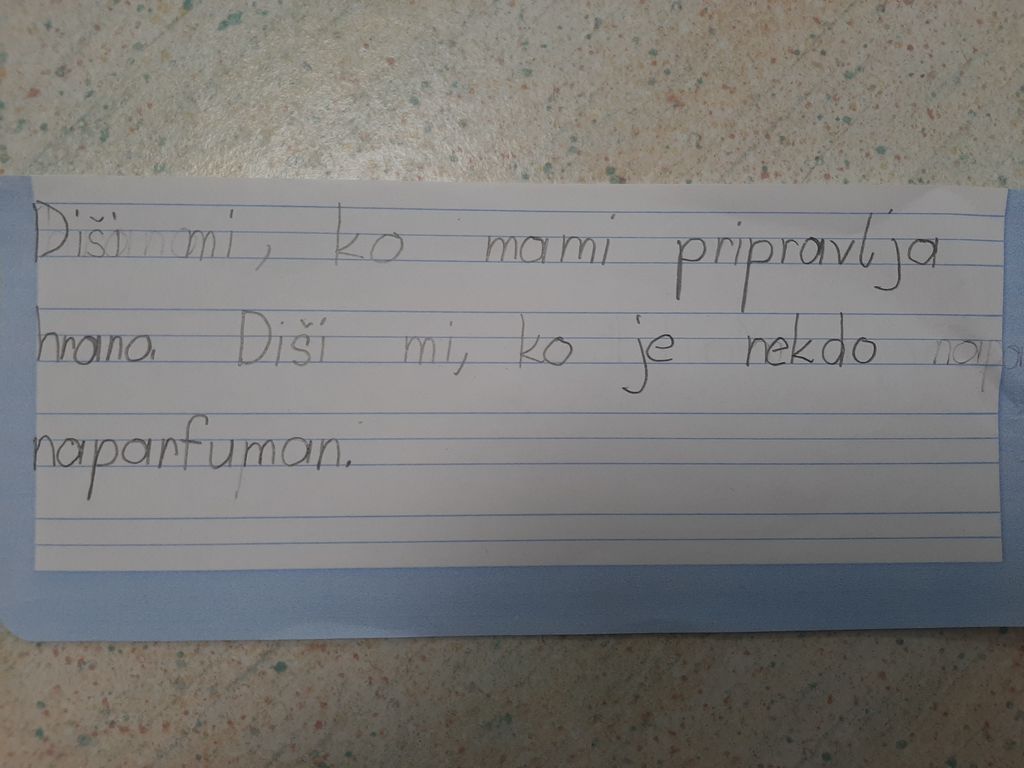 Diši mi, ko mami pripravlja
hrano. Diši mi, ko je nekdo
naparfuman.